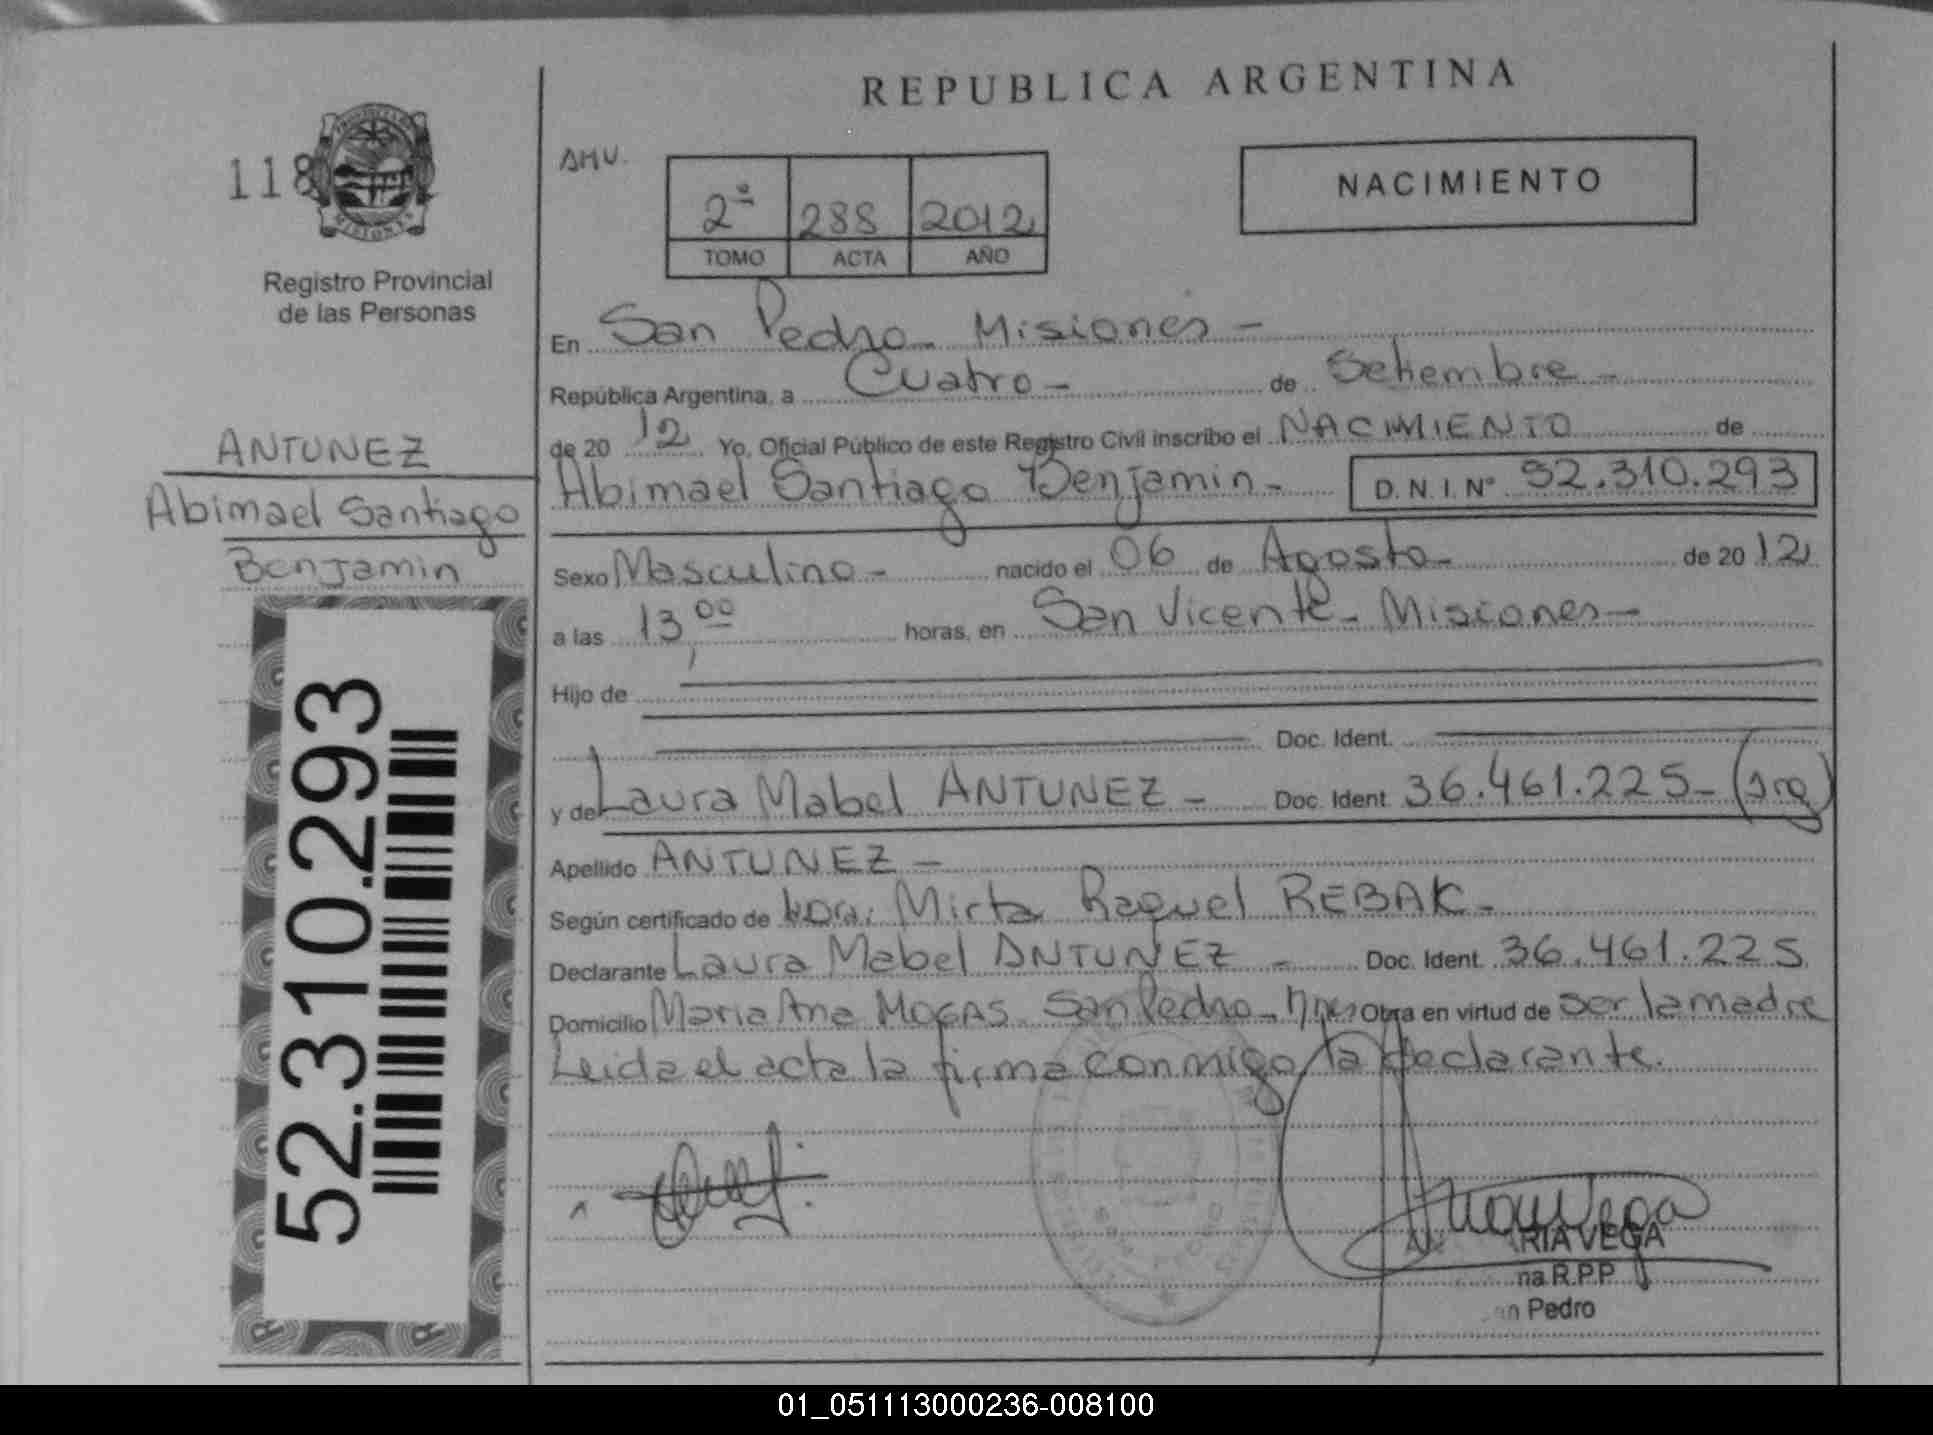 REPUBLICA ARGENTINA
118
AMV.
2ª 288 2012
TOMO ACTA AÑO
NACIMIENTO
Registro Provincial
de las Personas
ANTUNEZ
Abimael Santiago
Benjamin
52.310.293
En San Pedro - Misiones -
República Argentina, a Cuatro - de Setiembre -
de 20 12 Yo, Oficial Público de este Registro Civil inscribo el NACIMIENTO de
Abimael Santiago Benjamin - D.N.I. Nº 52.310.293
Sexo Masculino - nacido el 06 de Agosto - de 20 12
a las 13,00 horas, en San Vicente - Misiones -
Hijo de
Doc. Ident.
y de Laura Mabel ANTUNEZ - Doc. Ident. 36.461.225 - (Arg)
Apellido ANTUNEZ -
Según certificado de Mirta Raquel REBAK -
Declarante Laura Mabel ANTUNEZ - Doc. Ident. 36.461.225
Domicilio Maria Ana MOGAS San Pedro - Mnes Obra en virtud de ser la madre
Leida el acta la firma conmigo la declarante.
RIA VEGA
na R.P.P.
n Pedro
01_051113000236-008100